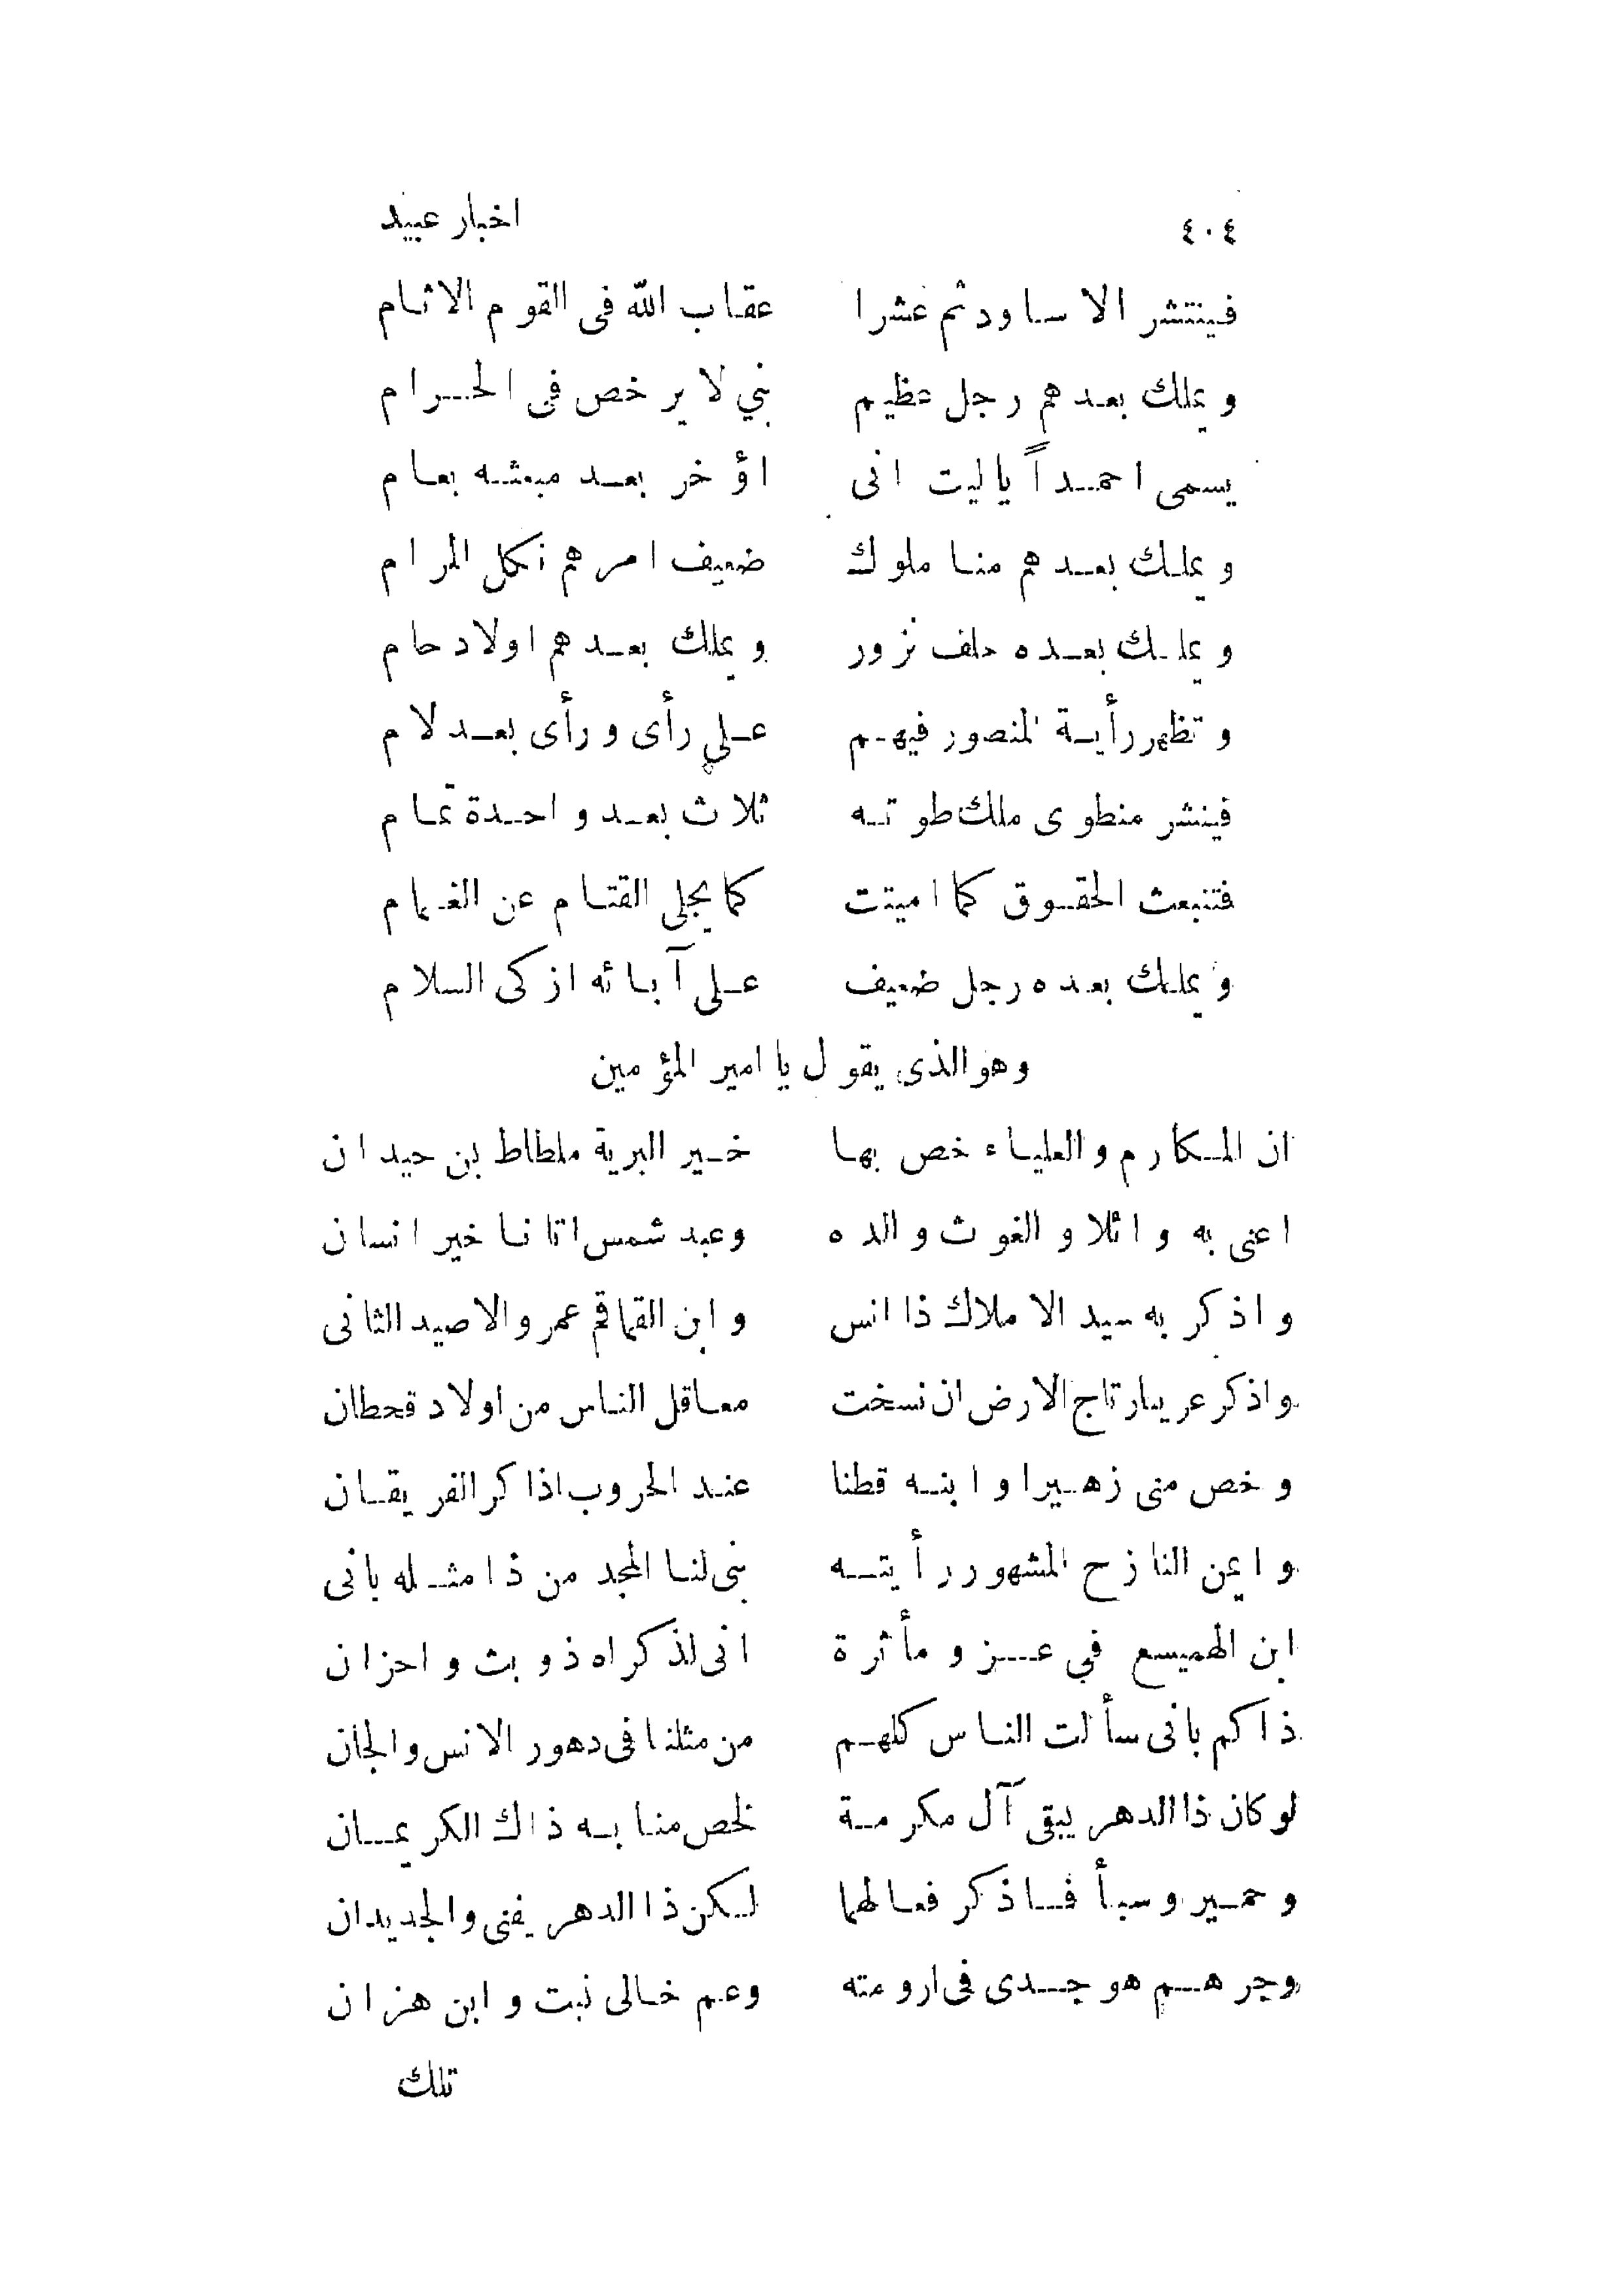 ٤٠٤ اخبار عبيد
فينتشر الاساود ثم عشرا عقاب الله فى القوم الاثام
ويملك بعدهم رجل عظيم نبي لا يرخص فى الحرام
يسمى احمداً ياليت انى اؤخر بعد مبعثه بعام
ويملك بعدهم منا ملوك ضعيف امرهم نكل المرام
ويملك بعده خلف نزور ويملك بعدهم اولاد حام
وتظهر رأية المنصور فيهم على رأى ورأى بعد لام
فينشر منطوى ملك طوته ثلاث بعد واحدة تمام
فتنبعث الحقوق كما اميتت كما يجلى القتام عن الغمام
ويملك بعده رجل ضعيف على آبائه ازكى السلام
وهو الذى يقول يا امير المؤمين
ان المكارم والعلياء خص بها خير البرية ملطاط بن حيدان
اعنى به وائلا والغوث والده وعبد شمس اتانا خير انسان
واذكر به سيد الاملاك ذا انس وابن القماقم عمرو الاصيد الثانى
واذكر عريبا رتاج الارض ان نسخت معاقل الناس من اولاد قحطان
وخص منى زهيرا وابنه قطنا عند الحروب اذا كر الفريقان
وايمن النازح المشهور رأيته بنى لنا المجد من ذا مثله بانى
ابن الهميسع في عز ومأثرة انى لذكراه ذو بث واحزان
ذاكم بانى سألت الناس كلهم من مثلنا فى دهور الانس والجان
لو كان ذا الدهر يبقى آل مكرمة لخص منا به ذاك الكريمان
وحمير وسبأ فاذكر فعالهما لكن ذا الدهر يفنى والجديدان
وجرهم هو جدى فى ارومته وعم خالى نبت وابن هزان
تلك